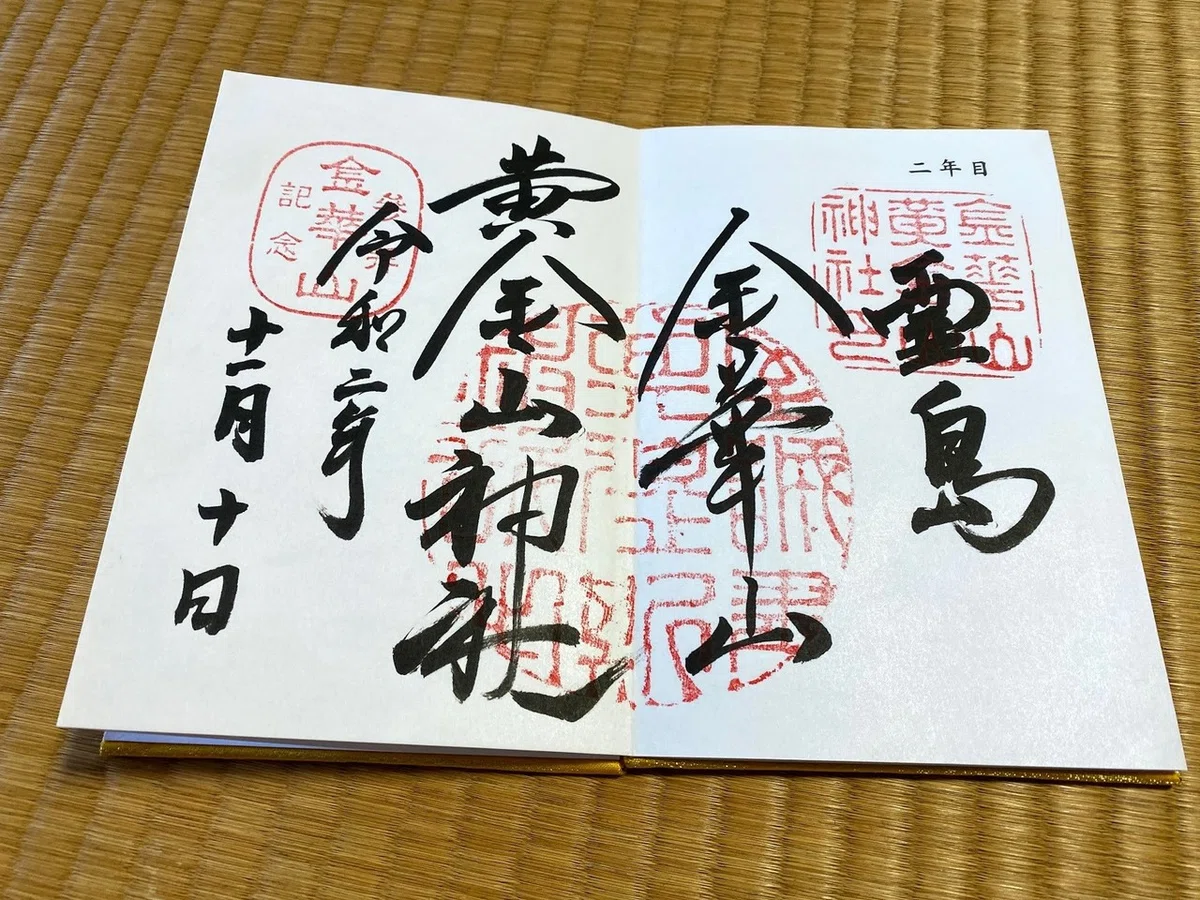 二年目
霊島
金華山
黄金山神社
令和二年
十一月十日
金華山
黄金山
神社印
参拝
金華山
記念